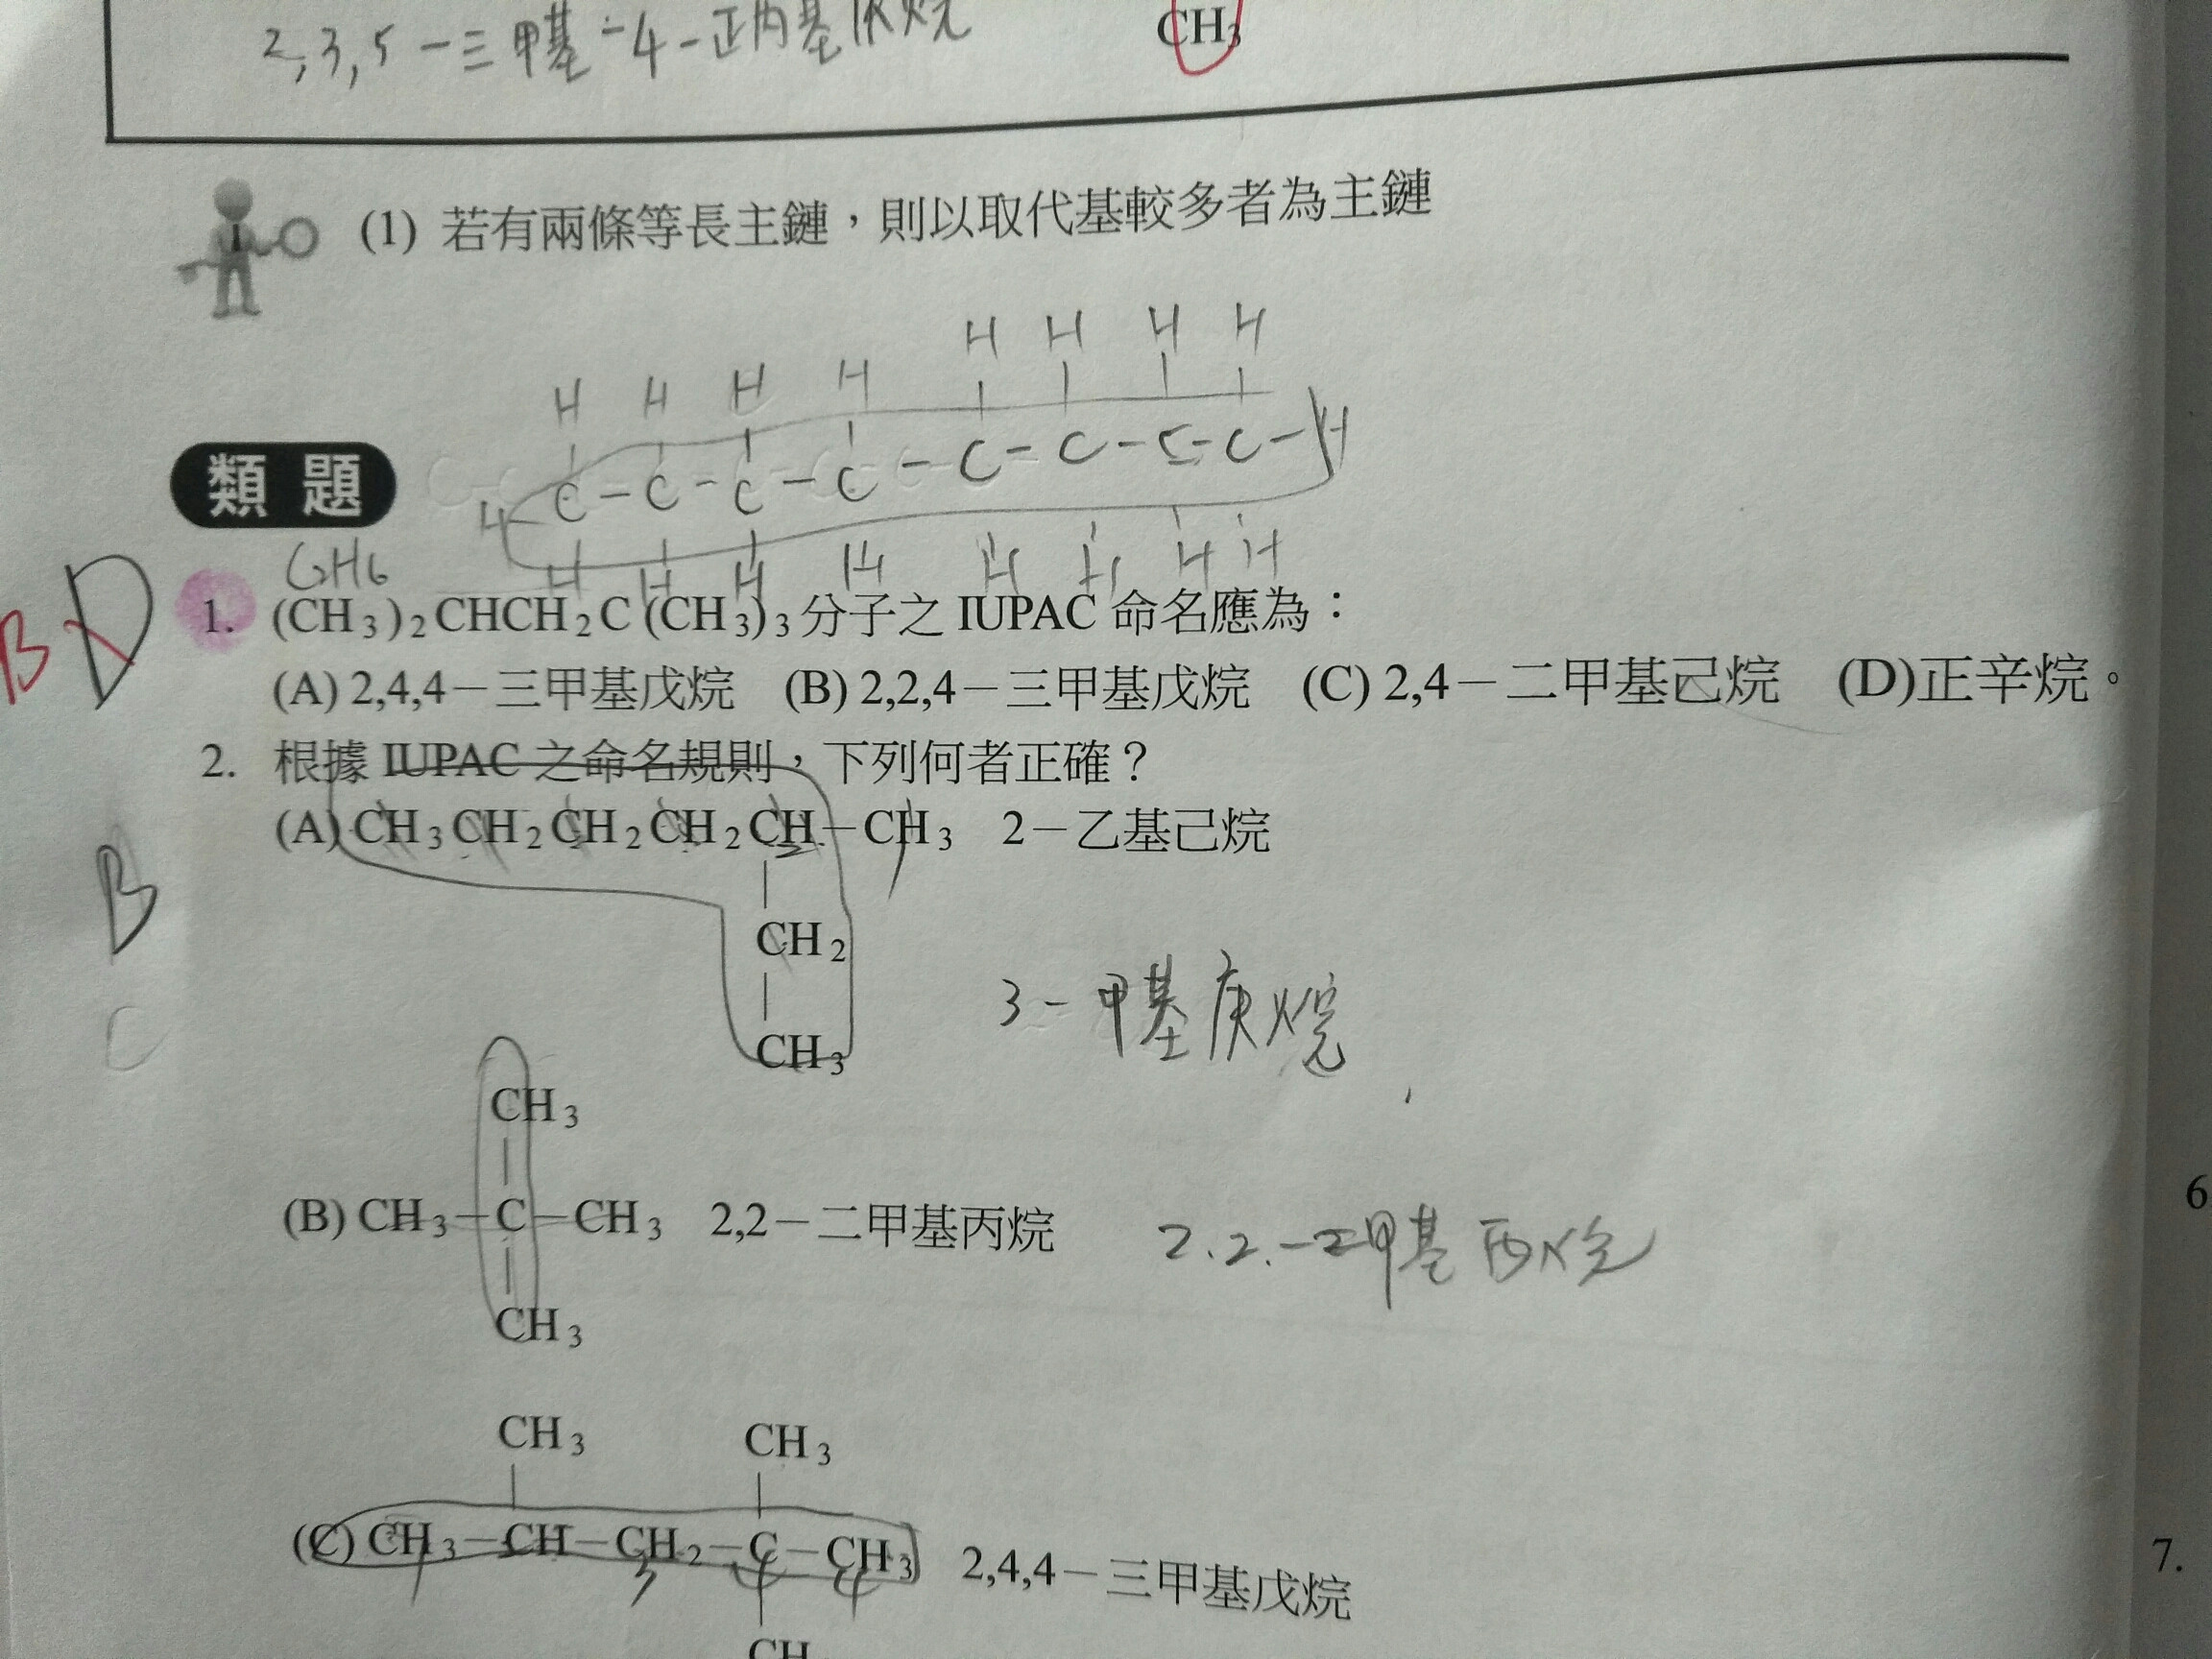 2,3,5-三甲基-4-正丙基庚烷
CH3
(1) 若有兩條等長主鏈，則以取代基較多者為主鏈
H H H H H H H H
H-C-C-C-C-C-C-C-C-H
H H H H H H H H
類題
B D
1. (CH3)2CHCH2C(CH3)3分子之 IUPAC 命名應為：
(A) 2,4,4－三甲基戊烷 (B) 2,2,4－三甲基戊烷 (C) 2,4－二甲基己烷 (D)正辛烷。
2. 根據 IUPAC 之命名規則，下列何者正確？
(A) CH3CH2CH2CH2CH－CH3 2－乙基己烷
B
CH2
CH3
3-甲基庚烷
C
CH3
(B) CH3－C－CH3 2,2－二甲基丙烷
2.2.-二甲基丙烷
CH3
CH3 CH3
(C) CH3－CH－CH2－C－CH3 2,4,4－三甲基戊烷
3 4
CH
6
7.